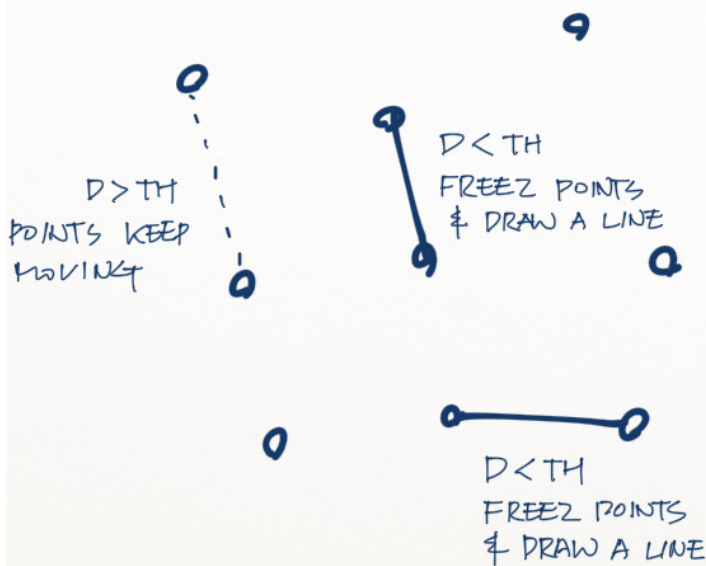 D > TH
POINTS KEEP
MOVING
D < TH
FREEZ POINTS
& DRAW A LINE
D < TH
FREEZ POINTS
& DRAW A LINE